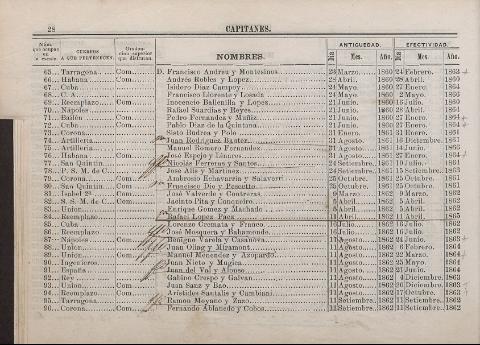 28 CAPITANES.
ANTIGUEDAD. EFECTIVIDAD.
CUERPOS NOMBRES. Mes. Año. Mes. Año.
65 Tarragona Com. D. Francisco Andreu y Montesinos 28 Marzo. 1860 24 Febrero. 1863
66 Habana Com. Andrés Robles y Lopez. 28 Abril. 1860 28 Abril. 1860
67 Cuba Com. Isidero Diaz Campoy 24 Mayo. 1860 27 Enero. 1861
68 C. A. Com. Francisco Llorente y Lozach 24 Mayo. 1860 2 Mayo. 1866
69 Reemplazo Com. Inocencio Ballenilla y Lopes 21 Junio. 1860 16 Julio. 1860
70 Nápoles Com. Rafael Suardias y Reyes 21 Junio. 1860 28 Abril. 1864
71 Bailén Com. Pedro Fernandez y Muñiz 21 Junio. 1860 27 Enero. 1864
72 Cuba Com. Pablo Diaz de la Quintana 21 Junio. 1860 27 Enero. 1864
73 Corona Sisto Budrea y Polo 31 Enero. 1861 31 Enero. 1861
74 Artillería Juan Rodriguez 31 Agosto. 1861 16 Diciembre. 1861
75 Artillería Manuel Romero Fernandez 31 Agosto. 1861
76 Habana Com. José Espejo y Linares 31 Agosto. 1861 27 Enero. 1864
77 San Quintin Nicolás Ferreras y Santos 24 Setiembre. 1861 19 Julio. 1861
78 P. S. M. de C. José Alis y Martinez 24 Setiembre. 1861 15 Setiembre. 1861
79 Corona Com. Ambrosio Echavarria y Salaverri 25 Octubre. 1861 25 Octubre. 1861
80 San Quintin Com. Francisco Dio y Pescetto 25 Octubre. 1861 25 Octubre. 1861
81 Isabel 2ª Com. José Valverde y Contreras 9 Marzo. 1862 9 Marzo. 1862
82 S. S. M. de C. Com. Jacinto Pita y Conceiro 5 Abril. 1862 5 Abril. 1862
83 Union Enrique Gomez y Machado 5 Abril. 1862 5 Abril. 1862
84 Reemplazo Rafael Lopez Paez 11 Abril. 1862 11 Abril. 1865
85 Cuba Lorenzo Cremata y Franco 16 Julio. 1862 16 Julio. 1862
86 Reemplazo José Mosquera y Bahamonde 16 Julio. 1862 16 Julio. 1862
87 Nápoles Com. Benigno Varela y Casanova 11 Agosto. 1862 24 Junio. 1863
88 Union Juan Olasg y Miramont 11 Agosto. 1862 6 Febrero. 1864
89 Union Com. Manuel Menendez y Azopardo 11 Agosto. 1862 22 Marzo. 1864
90 Ingenieros Juan Nieto y Mugica 11 Agosto. 1862 25 Mayo. 1864
91 España Juan del Val y Afonso 11 Agosto. 1862 21 Junio. 1864
92 Rey Gabino Crespo y Galvan 11 Agosto. 1862 4 Diciembre. 1863
93 Union Com. Juan Sanz y Bao 11 Agosto. 1862 26 Diciembre. 1863
94 Reemplazo Com. Aristides Santalis y Cambiani 11 Agosto. 1862 17 Octubre. 1863
95 Tarragona Com. Ramon Moyano y Zazo 11 Setiembre. 1862 11 Setiembre. 1862
96 Corona Com. Fernando Ablanedo y Cobos 11 Setiembre. 1862 11 Setiembre. 1862